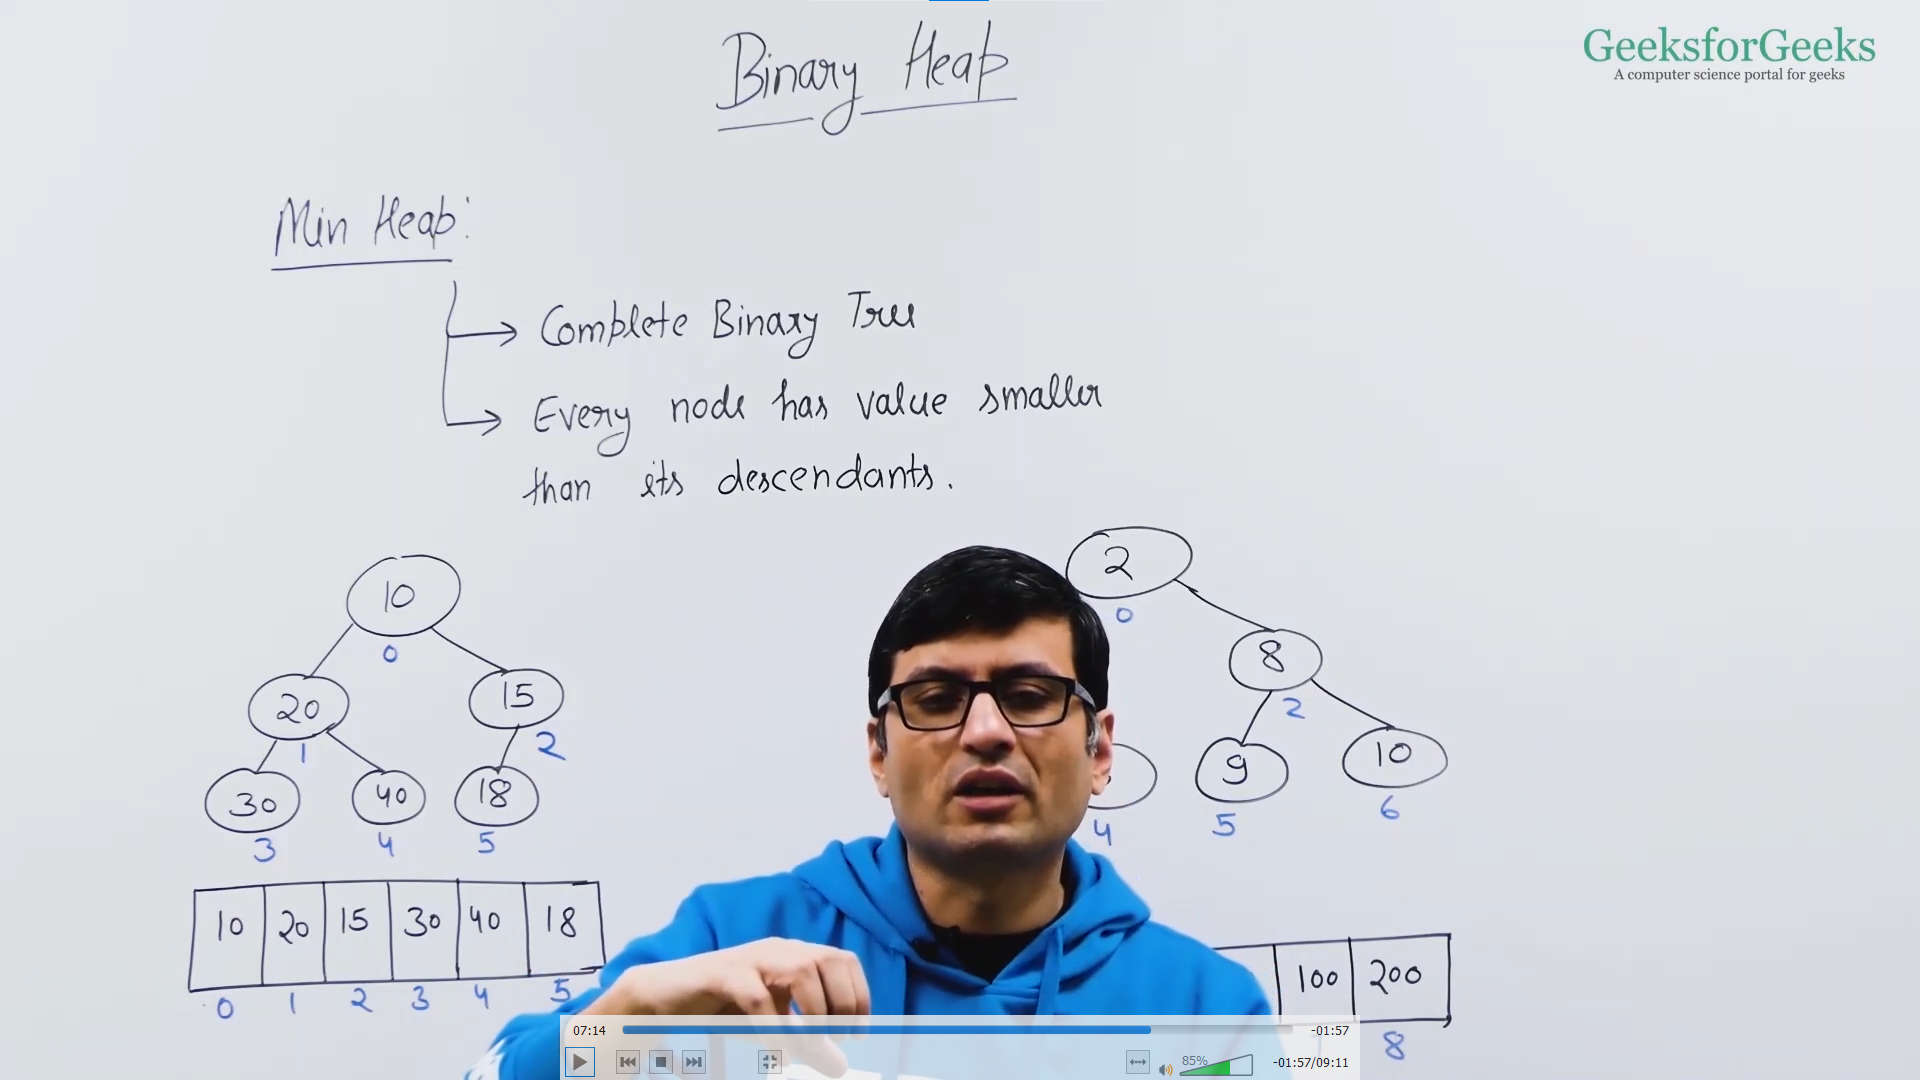 Binary Heap
GeeksforGeeks
A computer science portal for geeks
Min Heap:
Complete Binary Tree
Every node has value smaller
than its descendants.
10
0
20 15
1 2
30 40 18
3 4 5
10 20 15 30 40 18
0 1 2 3 4 5
2
0
8
2
9 10
4 5 6
100 200
8
07:14 -01:57
85% -01:57/09:11